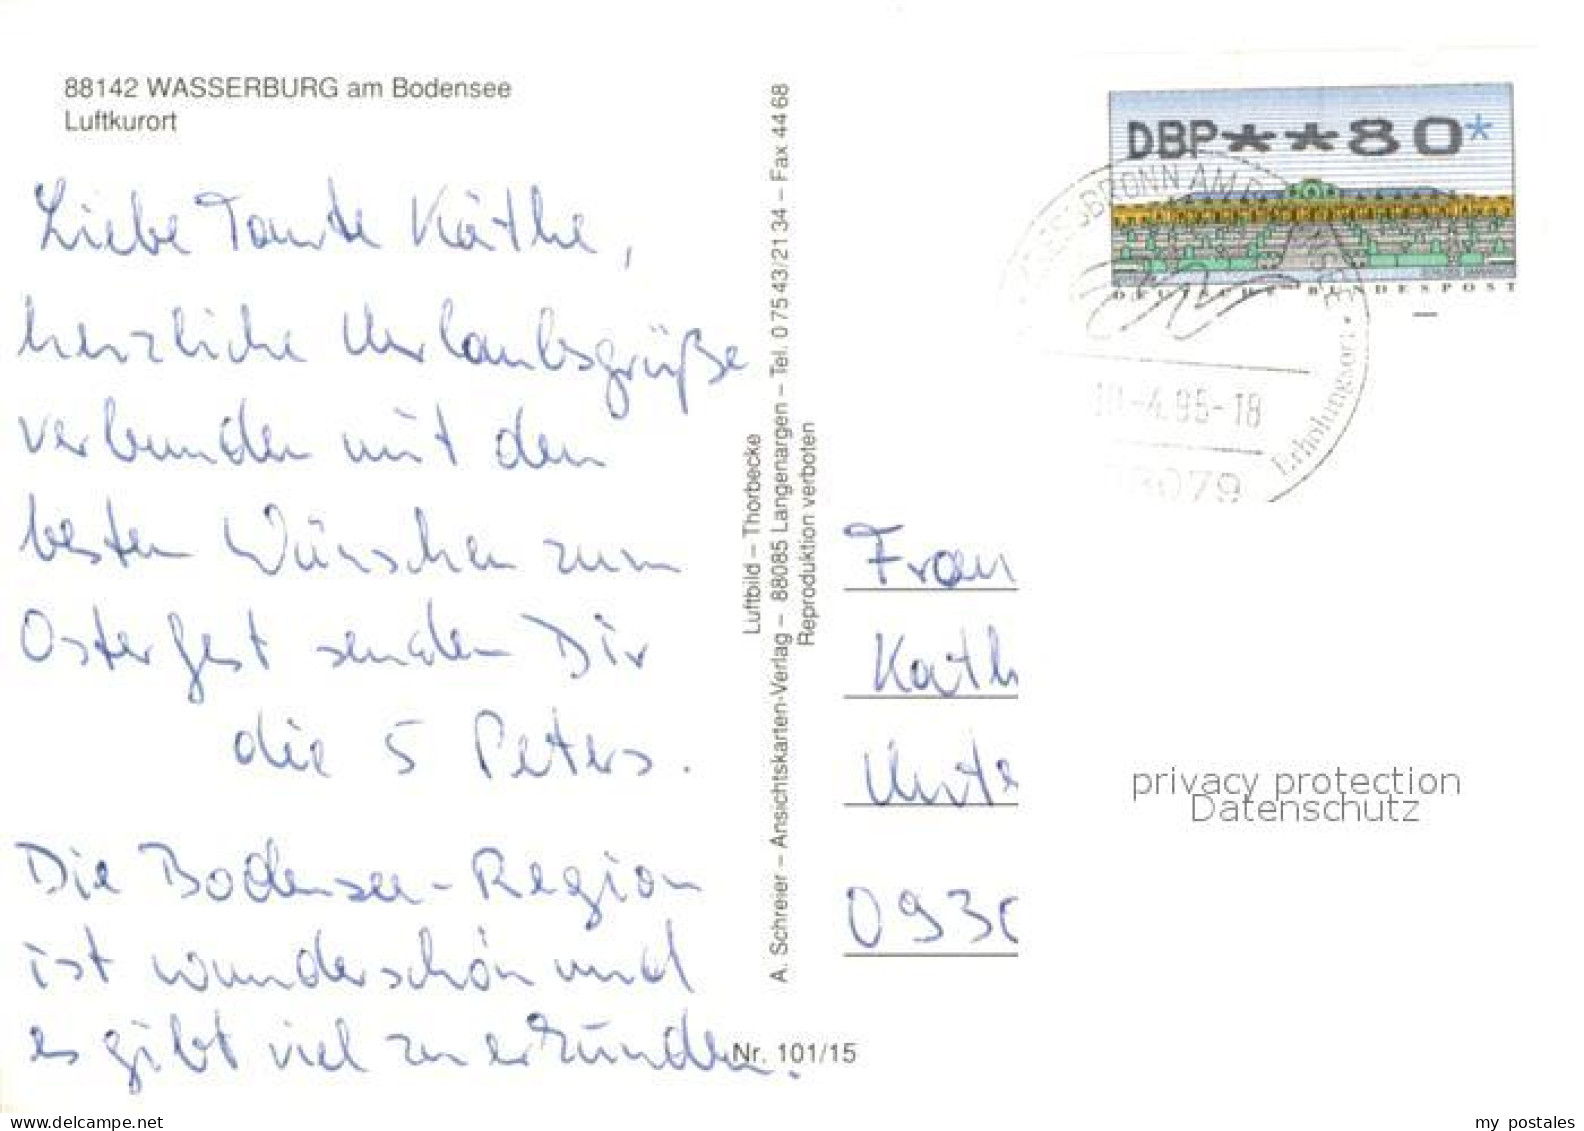 88142 WASSERBURG am Bodensee
Luftkurort
Liebe Tante Käthe,
herzliche Urlaubsgrüße
verbunden mit den
besten Wünschen zum
Osterfest senden Dir
die 5 Peters.
Die Bodensee-Region
ist wunderschön und
es gibt viel zu erkunden.
Luftbild – Thorbecke
A. Schreier – Ansichtskarten-Verlag – 88085 Langenargen – Tel. 0 75 43/21 34 – Fax 44 68
Reproduktion verboten
Nr. 101/15
DBP**80*
DEUTSCHE BUNDESPOST
BRONN AM
-4.95-18
079
Erholungsort
Frau
Käth
Unte
0930
privacy protection
Datenschutz
my postales